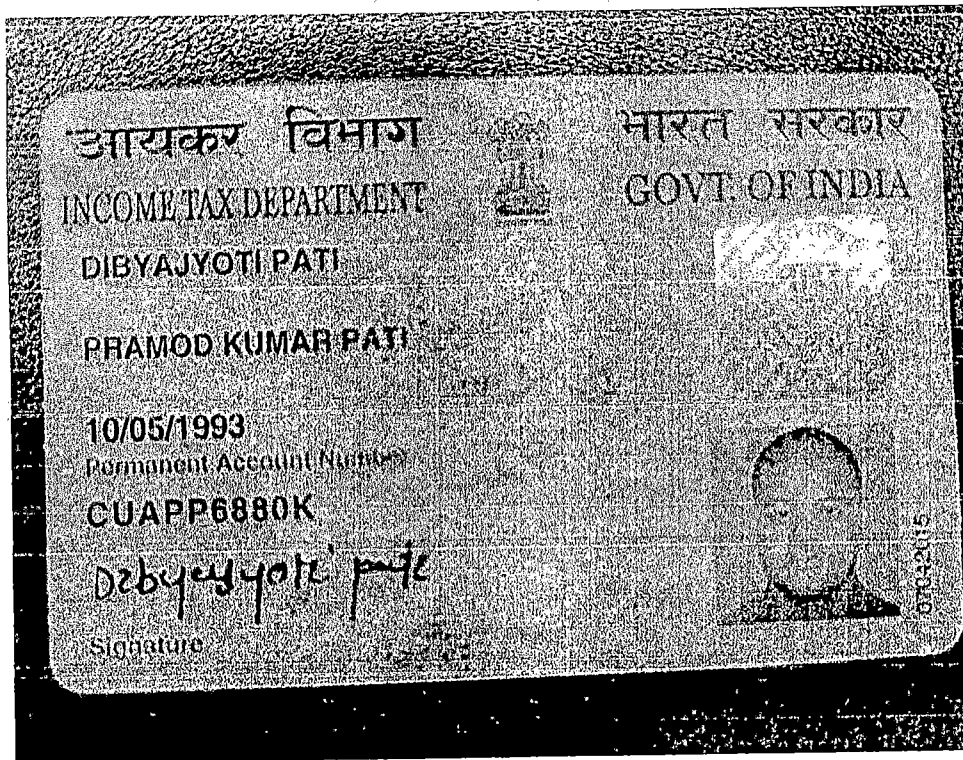 आयकर विभाग
भारत सरकार
INCOME TAX DEPARTMENT
GOVT. OF INDIA
DIBYAJYOTI PATI
PRAMOD KUMAR PATI
10/05/1993
Permanent Account Number
CUAPP6880K
Dibyajyoti pati
Signature
07042015